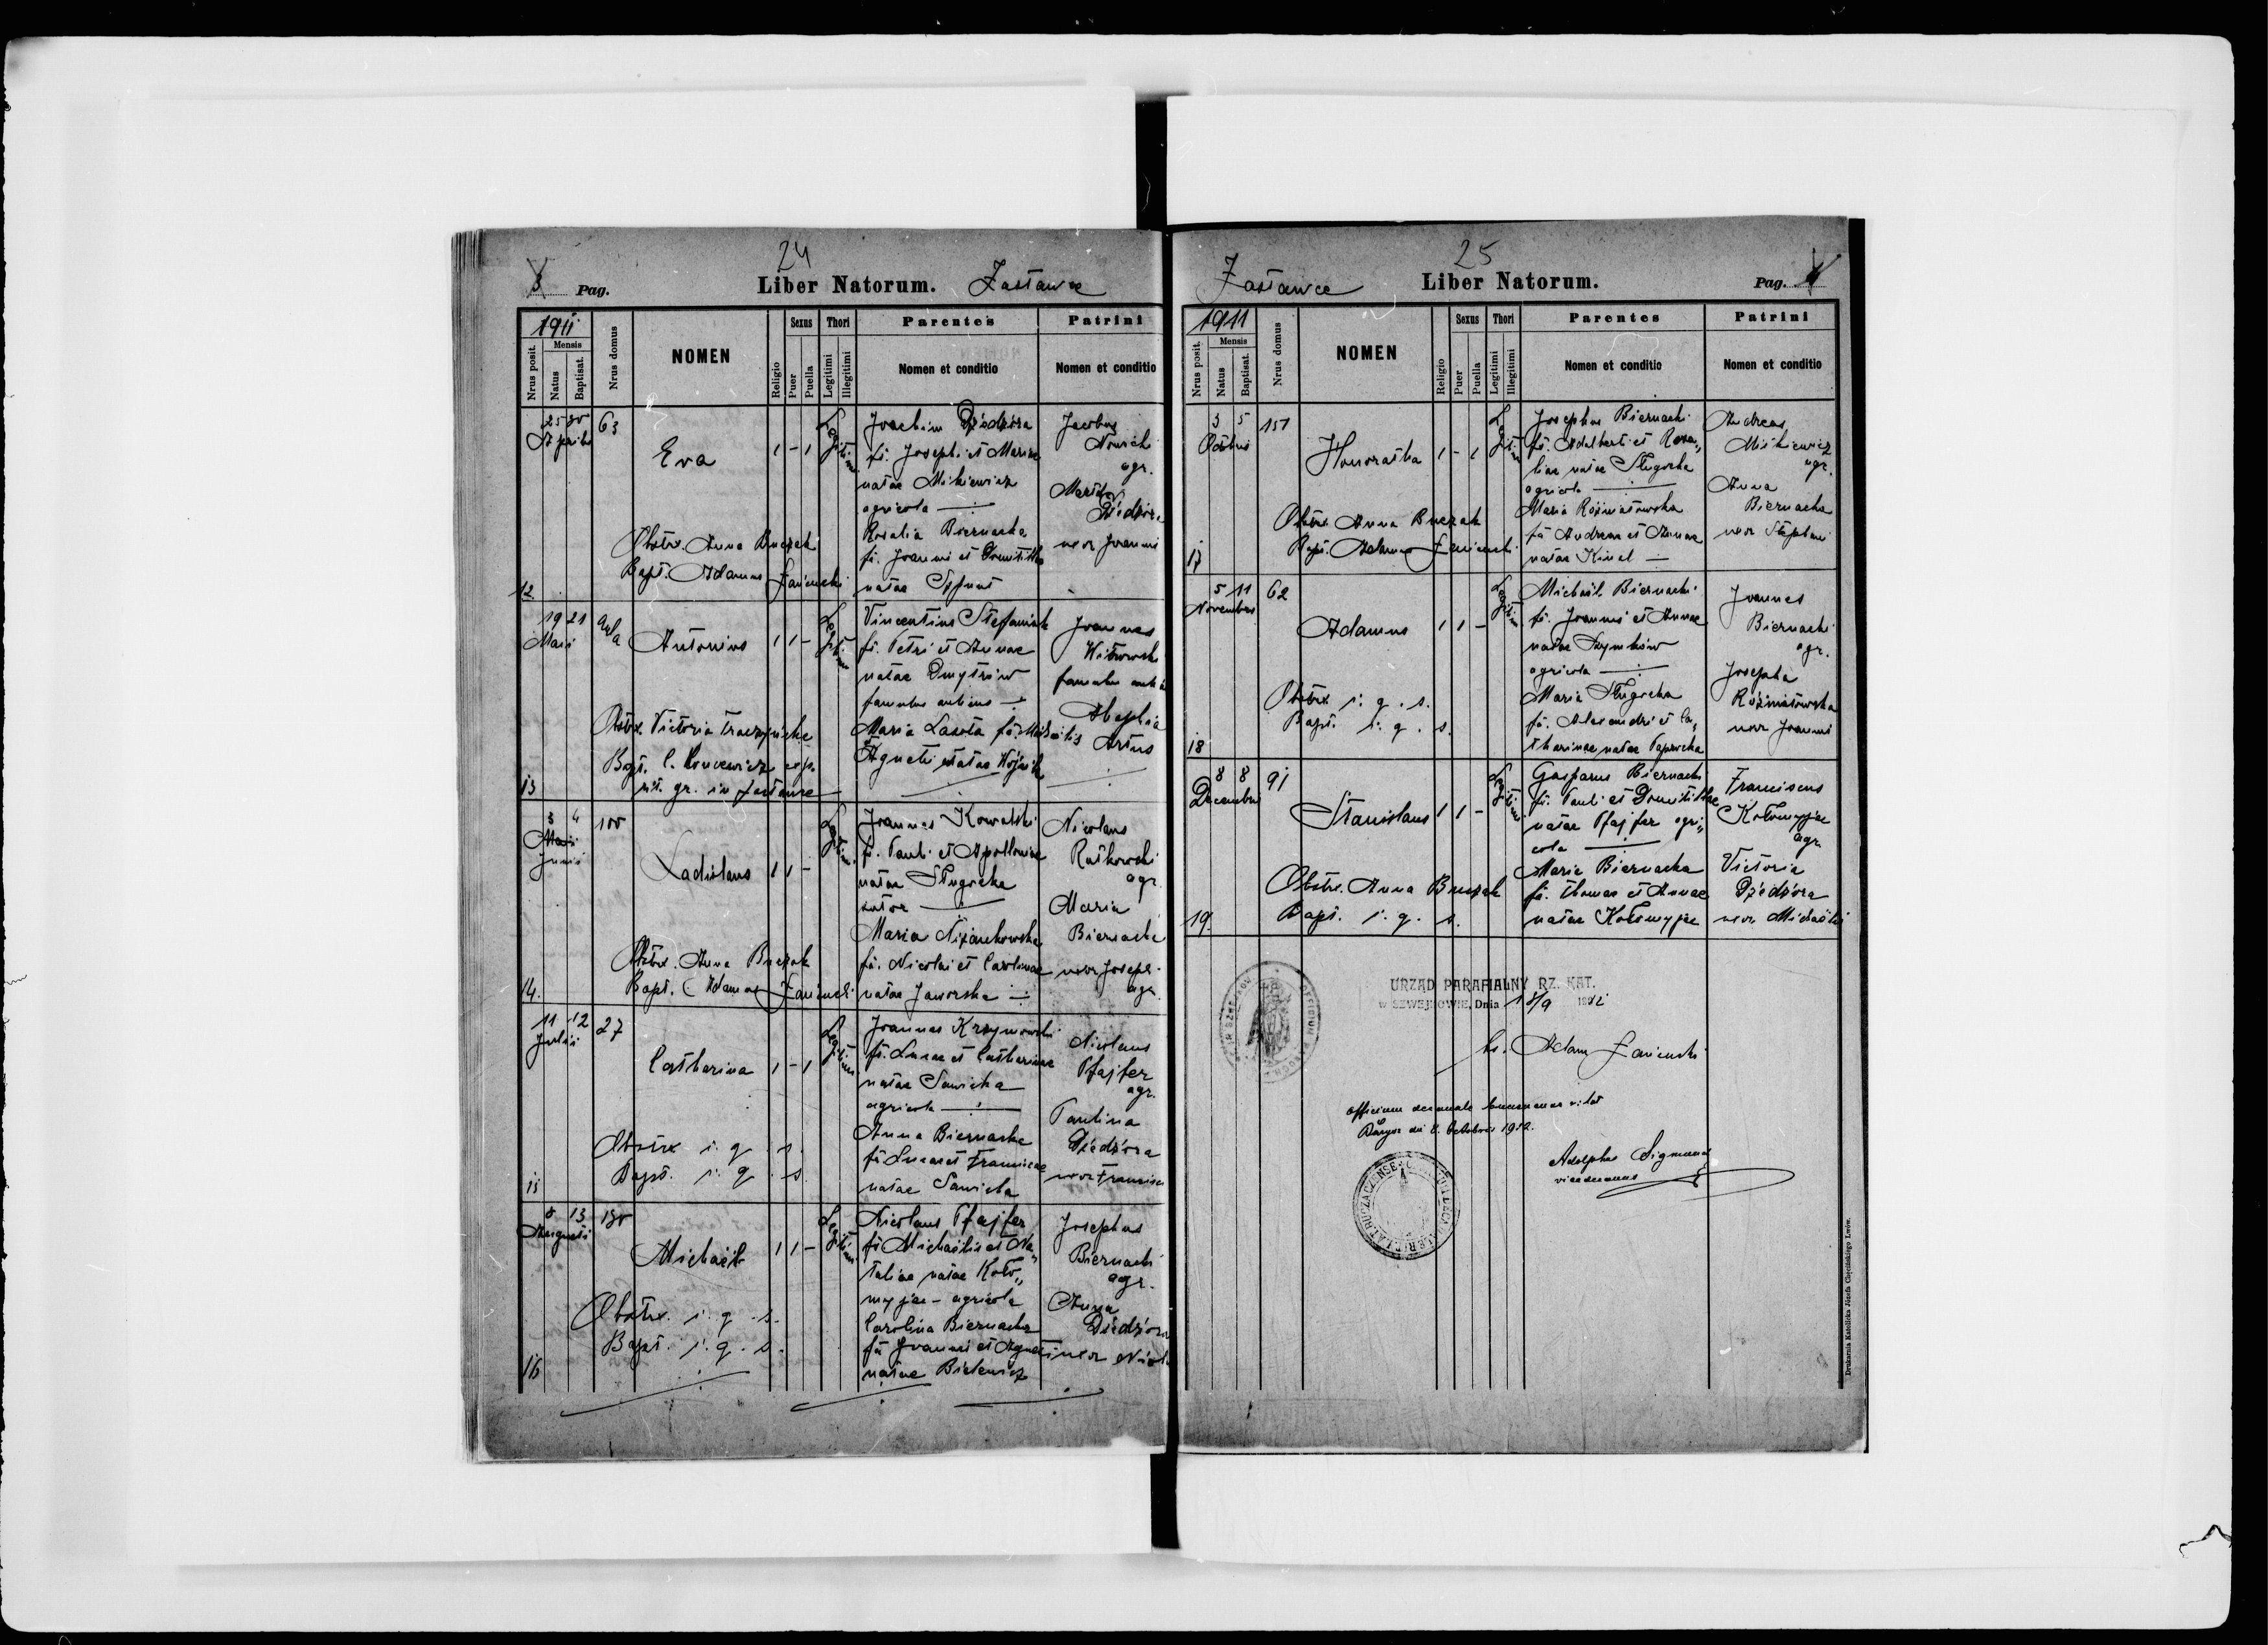 24
3 Pag. Liber Natorum. Zastawce
1911
Nrus posit.
Mensis
Natus
Baptisat.
Nrus domus
NOMEN
Religio
Sexus
Puer
Puella
Thori
Legitimi
Illegitimi
Parentes
Nomen et conditio
Patrini
Nomen et conditio
12
25 30
Aprilis
63
Eva
1 - 1
Legitimi
Obstx. Anna Buczak
Bapt. Adamus Zaniewski
Joachim Dziedzóra
fs. Josephi et Mariae
natae Mikiewicz
agricola
Rosalia Biernacka
fa. Joannis et Domitillae
natae
Jacobus
Nowicki
agr.
Martha
Dziedzóra
uxor Joannis
13
19 21
Maii
aula
Antonius
1 1 -
Legitimi
Obstx. Victoria
Bapt. C.
rit. gr. in Zastawce
Vincentius Stefaniuk
fs. Petri et Annae
natae Dmytrów
famulus aulicus
Maria Lasota fa. Michaëlis
Agnetis natae Wójcik
Joannes
Witkowski
famulus
Artus
14.
3 4
Maii
Junii
100
Ladislaus
1 1 -
Legitimi
Obstx. Anna Buczak
Bapt. Adamus Zaniewski
Joannes Kowalski
fs. Pauli et Apolloniae
natae Długocka
sutor
Maria Niżankowska
fa. Nicolai et Carolinae
natae Jaworska
Nicolaus
Rutkowski
agr.
Maria
Biernacka
uxor Josephi
agr.
15
11 12
Julii
27
Catharina
1 - 1
Legitimi
Obstrx i. q. s.
Bapt. i. q. s.
Joannes Krzymowski
fs. Lucae et Catharinae
natae Sawicka
agricola
Anna Biernacka
fa Lucae et Franciscae
natae Sawicka
Nicolaus
Pfajfer
agr.
Paulina
Dziedzóra
uxor Francisci
16
8 13
Augusti
130
Michaël
1 1 -
Legitimi
Obstx. i. q. s.
Bapt. i. q. s.
Nicolaus Pfajfer
fs Michaëlis et Na„
taliae natae Koło„
myjec - agricola
Carolina Biernacka
fa Joannis et Agnetis
natae Bielewicz
Josephus
Biernacki
agr.
Anna
Dziedzóra
uxor Nicol
25
Zastawce Liber Natorum. Pag. 4
1911
Nrus posit.
Mensis
Natus
Baptisat.
Nrus domus
NOMEN
Religio
Sexus
Puer
Puella
Thori
Legitimi
Illegitimi
Parentes
Nomen et conditio
Patrini
Nomen et conditio
17
3 5
Octobris
151
Honoratha
1 - 1
Legitimi
Obstx. Anna Buczak
Bapt. Adamus Zaniewski
Josephus Biernacki
fs. Adalberti et Rosa„
liae natae Długocka
agricola
Maria Rózmiatowska
fa Andreae et Annae
natae Kinal
Andreas
Mikiewicz
agr.
Anna
Biernacka
uxor Stephani
18
5 11
Novembris
62
Adamus
1 1 -
Legitimi
Obstrx i. q. s.
Bapt. i. q. s.
Michaël Biernacki
fs. Joannis et Annae
natae Szymków
agricola
Maria Długocka
fa. Alexandri et Ca„
tharinae natae Paprocka
Joannes
Biernacki
agr.
Josepha
Rózmiatowska
uxor Joannis
19.
8 8
Decembris
91
Stanislaus
1 1 -
Legitimi
Obstx. Anna Buczak
Bapt. i. q. s.
Gasparus Biernacki
fs. Pauli et Domitillae
natae Pfajfer agri„
cola
Maria Biernacka
fa. Thomae et Annae
natae Kołomyjec
Franciscus
Kołomyjec
agr.
Victoria
Dziedzóra
uxor Michaëlis
URZĄD PARAFIALNY RZ. KAT.
w SZWEJKOWIE, Dnia 18/9 1912
ks. Adam Zaniewski
Officium decanale Buczaczense vidit
die 8. Octobris 1912.
Adolphus Sigmund
vicedecanus
Drukarnia Katolicka Józefa Chęcińskiego Lwów.